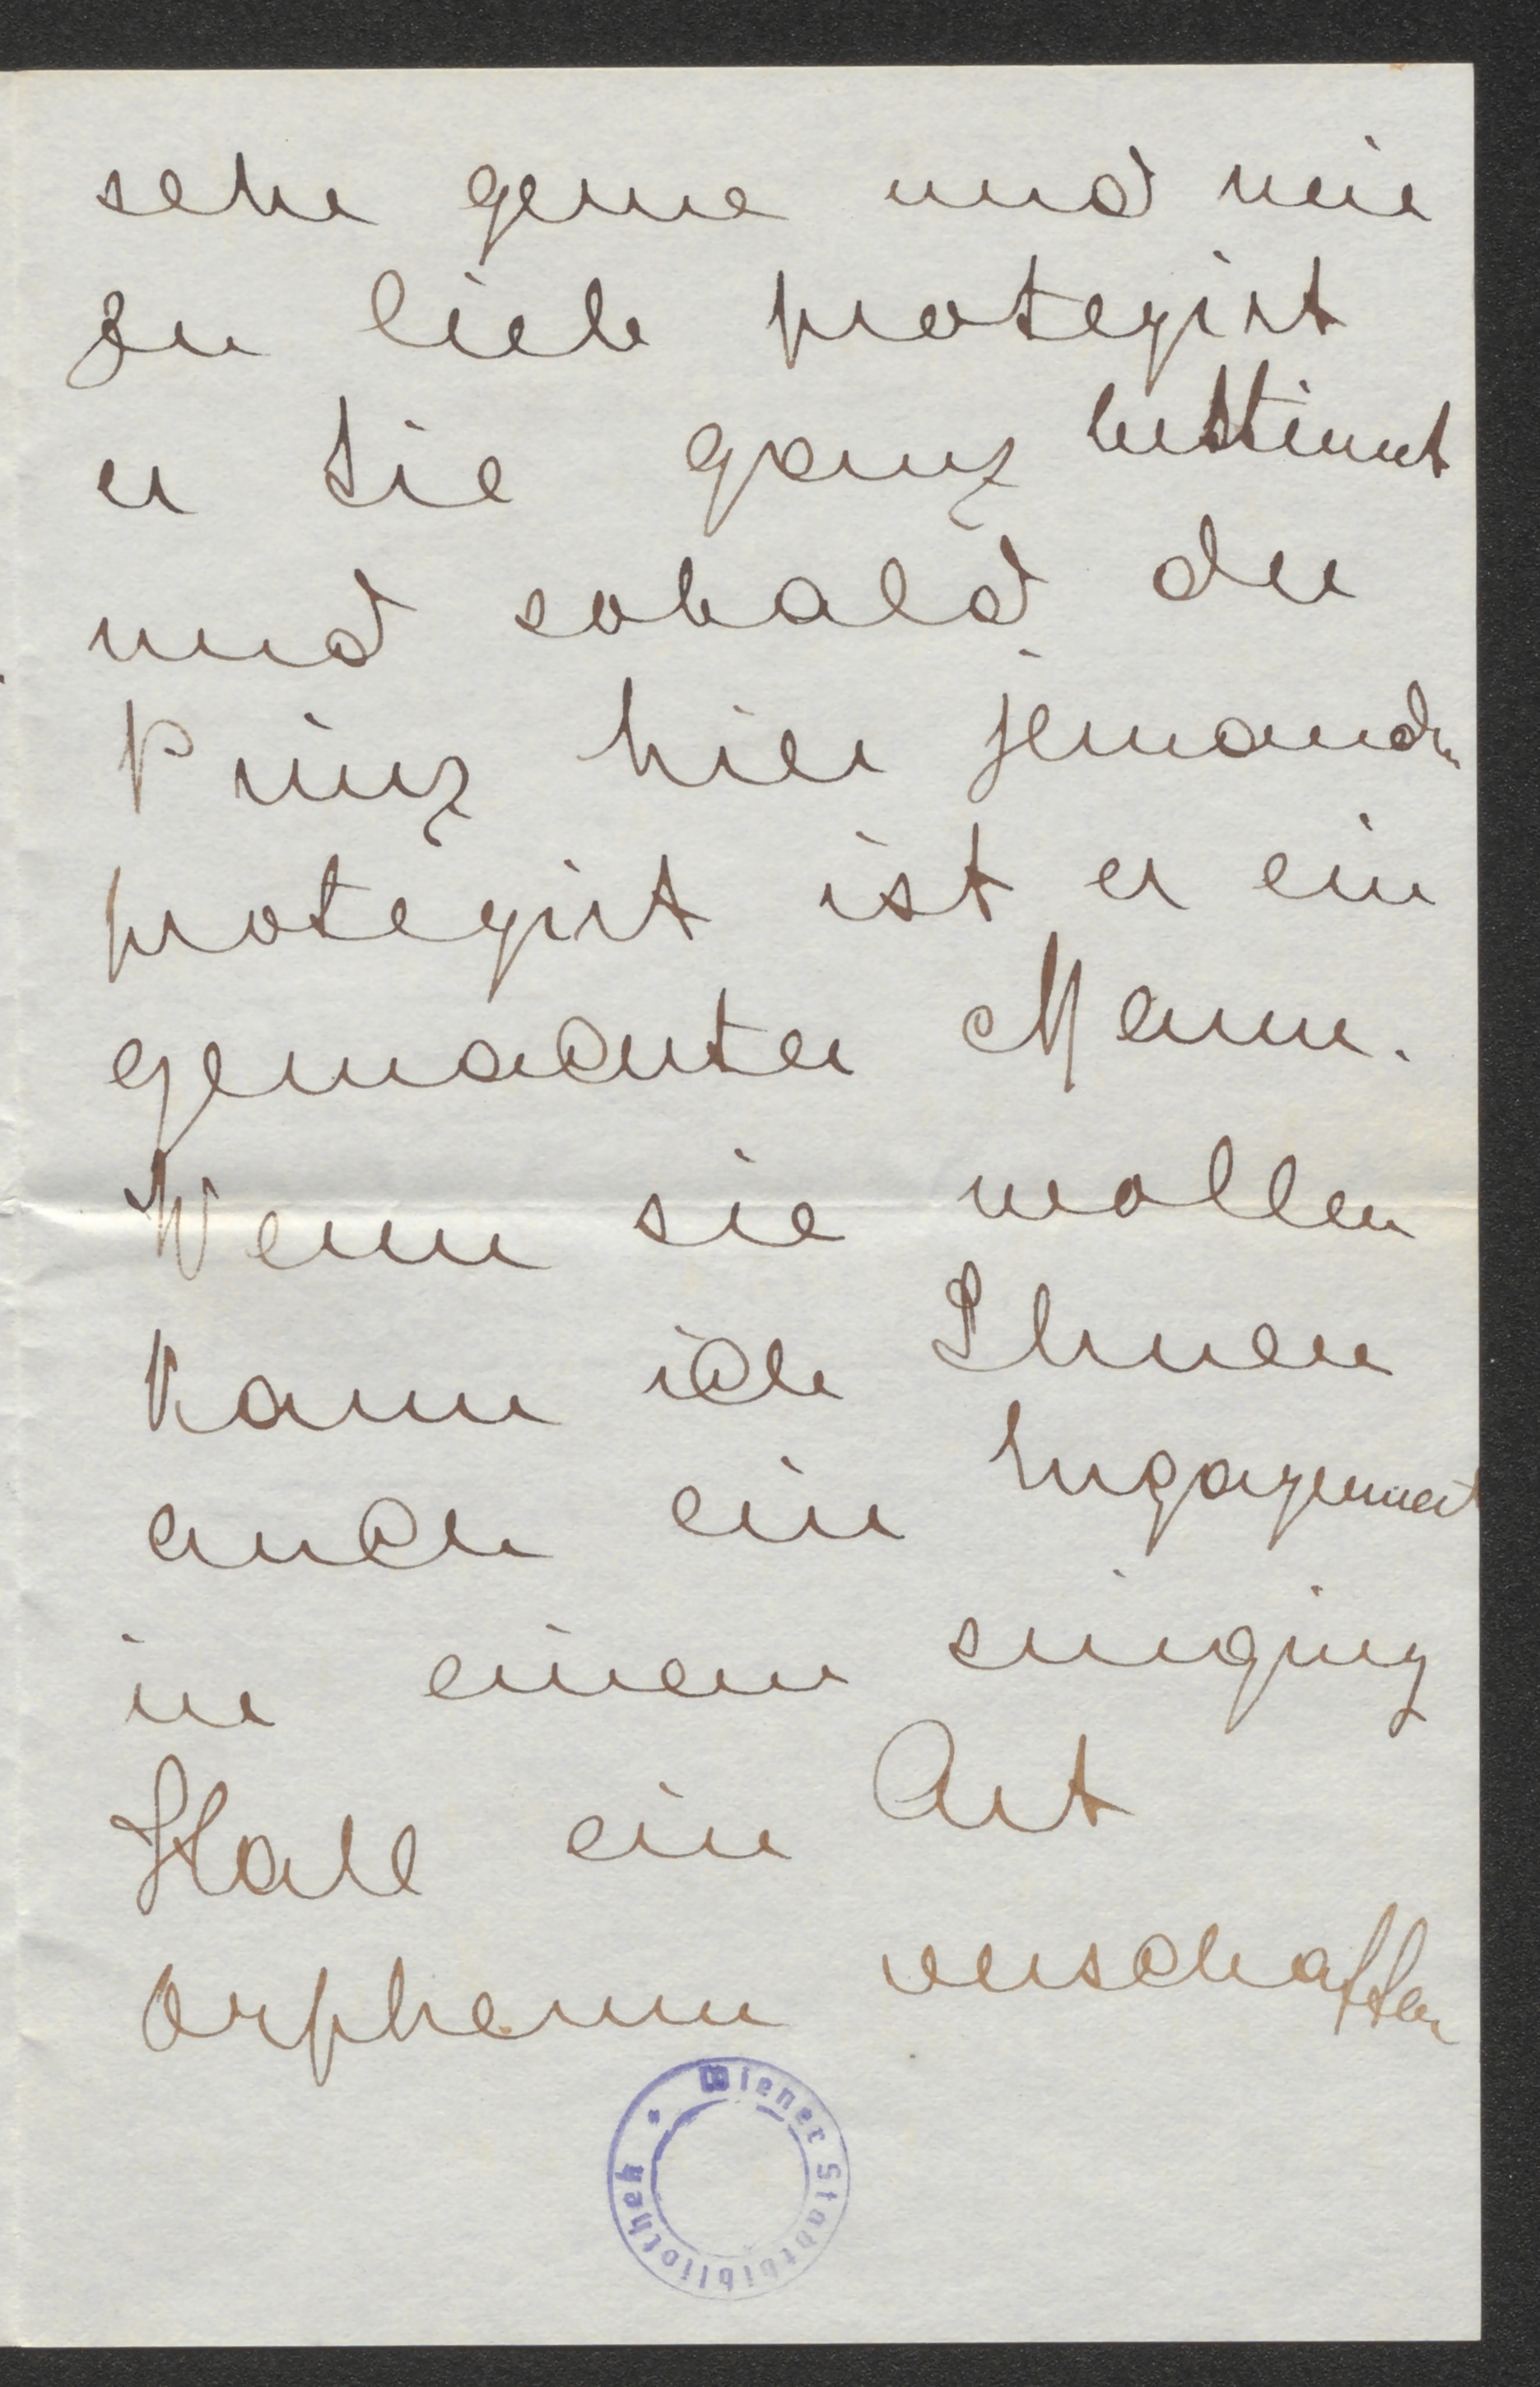 sehr gerne und mir
zu lieb protegirt
er Sie ganz bestimmt
und sobald der
Prinz hier jemanden
protegirt ist er ein
gemachter Mann.
Wenn sie wollen
kann ich Ihnen
auch ein Engagement
in einem singing
Hall ein Art
Orpheum verschaffen
Wiener Stadtbibliothek